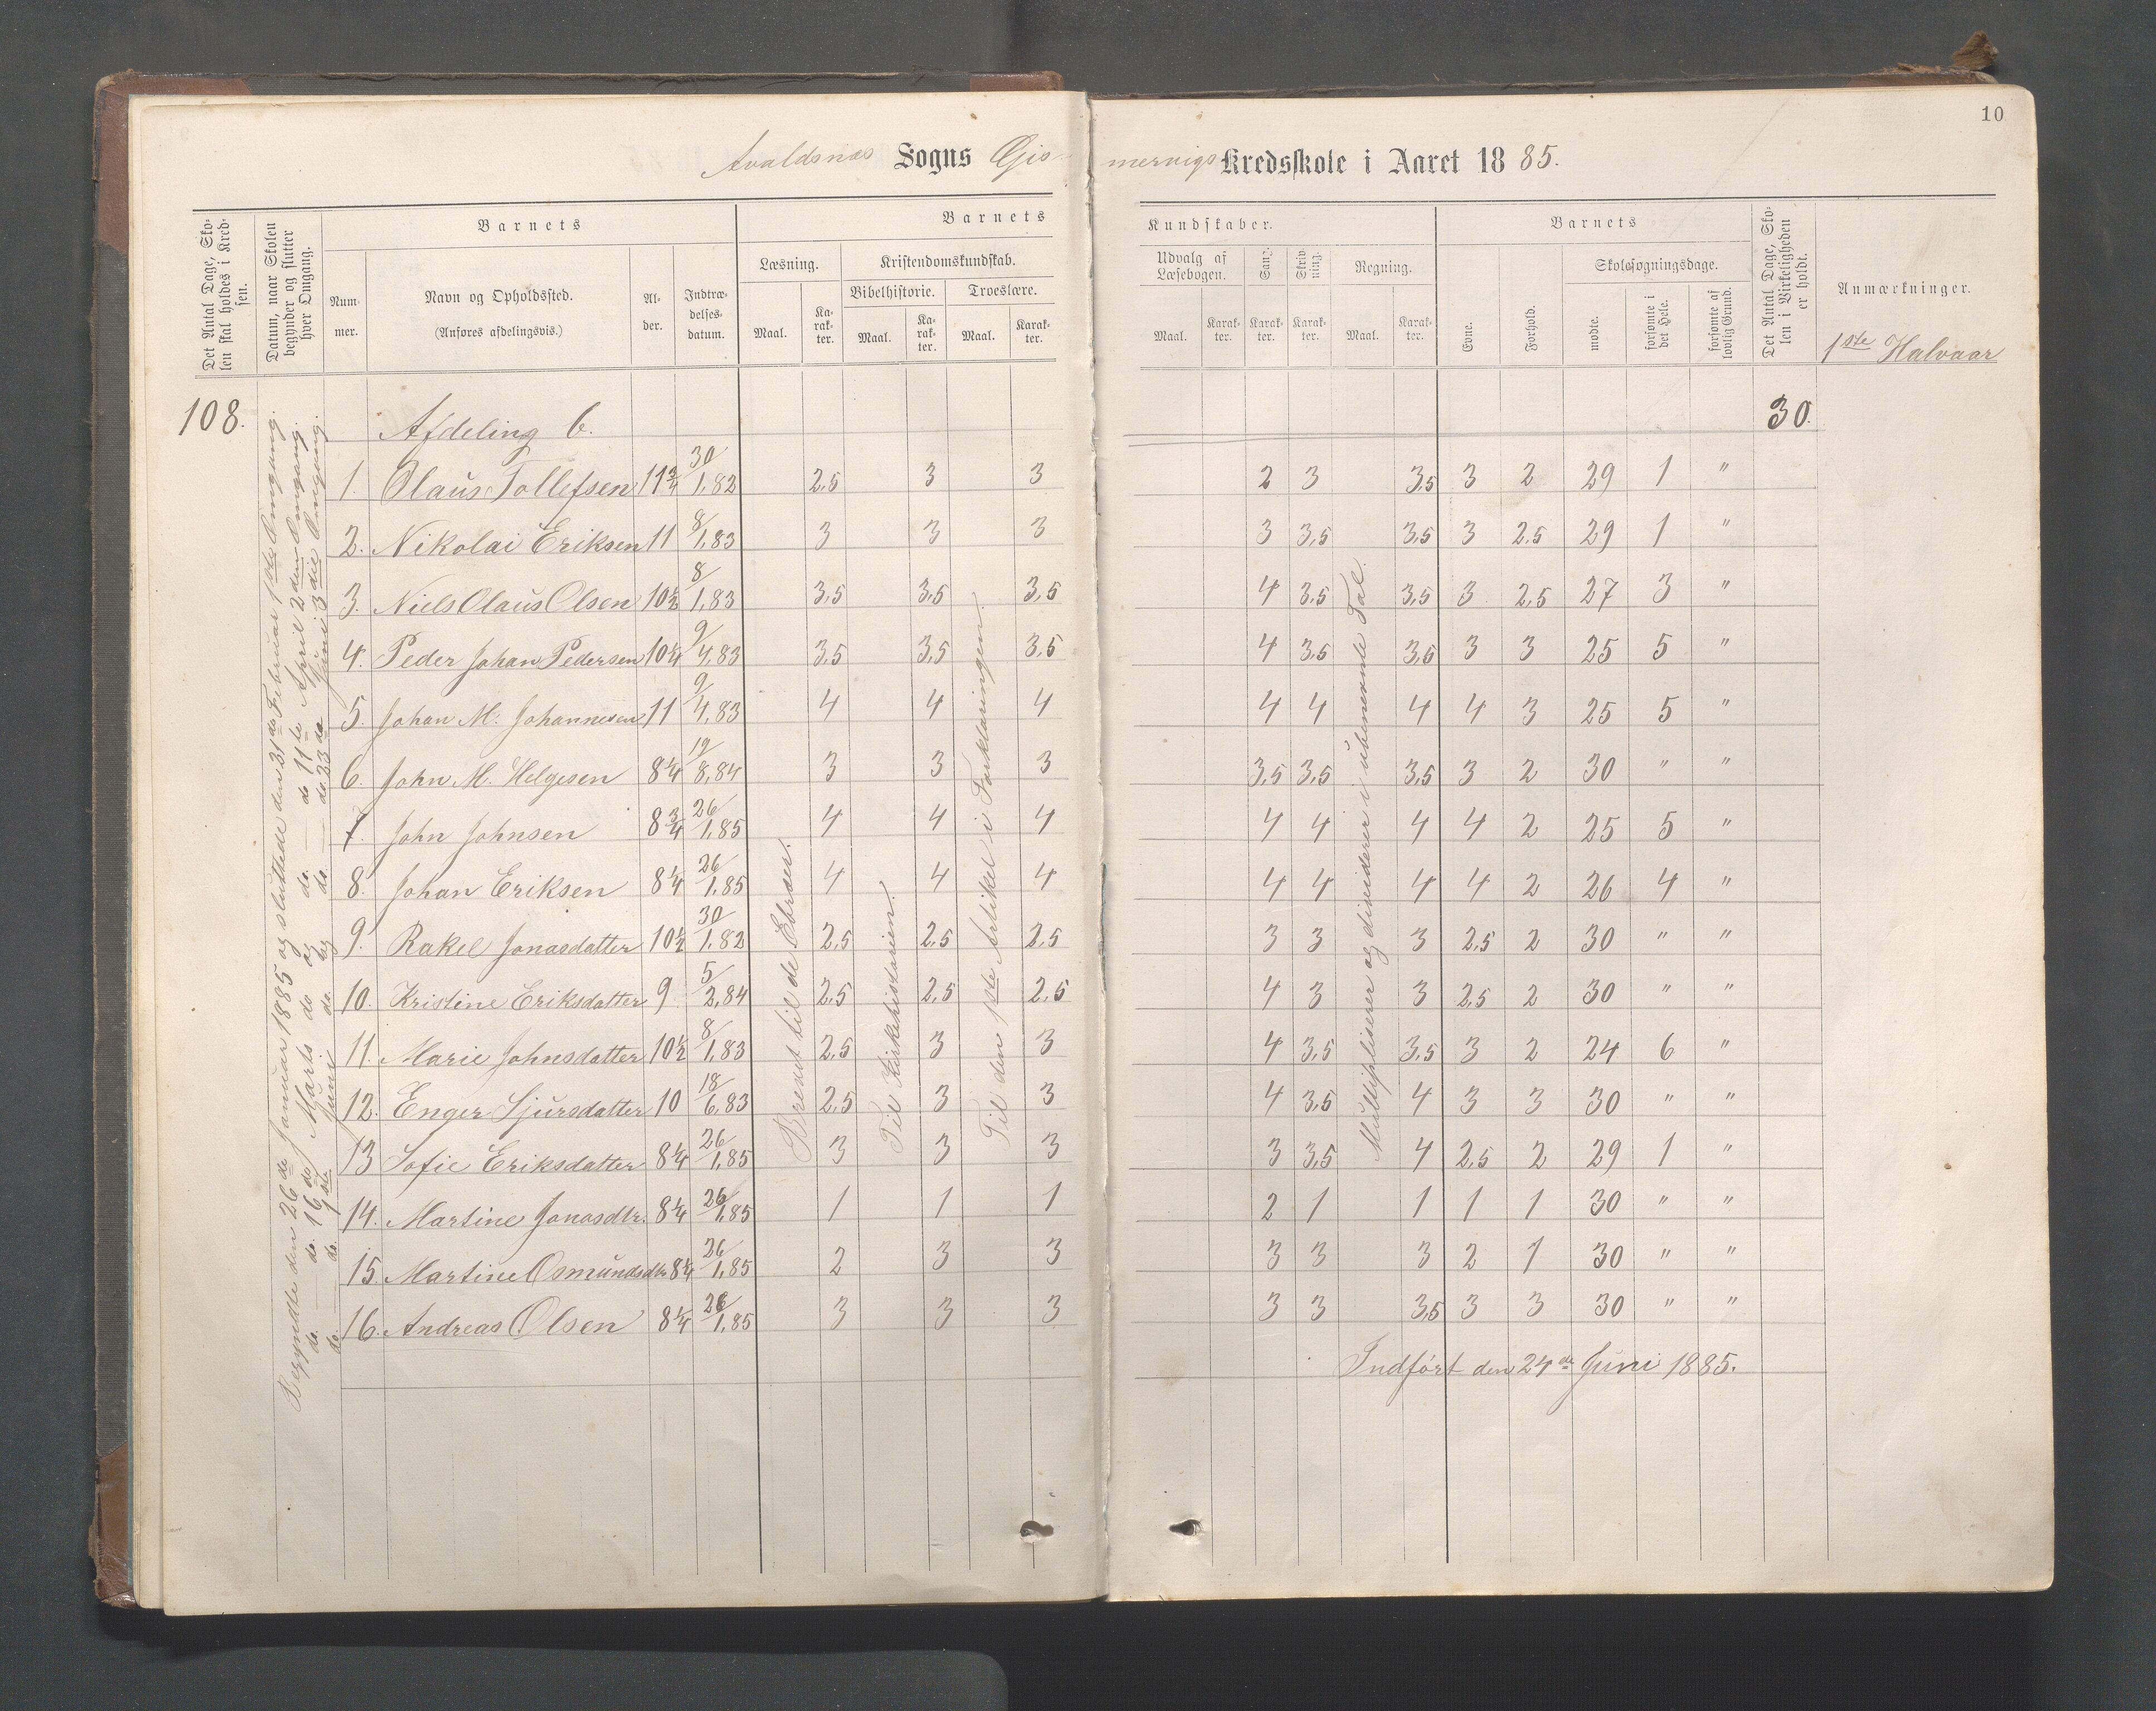 10
Avaldsnæs Sogns Gis-
mervigs Kredsskole i Aaret 1885.
Det Antal Dage, Sko-
len skal holdes i Kred-
sen.
Datum, naar Skolen
begynder og slutter
hver Omgang.
Barnets
Num-
mer.
Navn og Opholdssted.
(Anføres afdelingsvis.)
Al-
der.
Indtræ-
delses-
datum.
Barnets
Læsning.
Maal.
Ka-
rak-
ter.
Kristendomskundskab.
Bibelhistorie.
Maal.
Ka-
rak-
ter.
Troeslære.
Maal.
Karak-
ter.
Kundskaber.
Udvalg af
Læsebogen.
Maal.
Karak-
ter.
Sang.
Karak-
ter.
Skriv-
ning.
Karak-
ter.
Regning.
Maal.
Karak-
ter.
Barnets
Evne.
Forhold.
Skolesøgningsdage.
mødte.
forsømte i
det Hele.
forsømte af
lovlig Grund.
Det Antal Dage, Sko-
len i Virkeligheden
er holdt.
Anmærkninger.
1ste Halvaar
108.
Begyndte den 26de Januar 1885 og sluttede den 31de Februar 1ste Omgang.
do. — do. 16de Marts do og do. — do 11te April 2den Omgang.
do. — do. 9de Juni do. og do — do. 23de Juni 3die Omgang.
Afdeling 6. 30.
1. Olaus Tollefsen 11 3/4 30/1.82 2,5 3 3 2 3 3,5 3 2 29 1 "
2. Nikolai Eriksen 11 8/1.83 3 3 3 3 3,5 3,5 3 2,5 29 1 "
3. Niels Olaus Olsen 10 1/2 8/1.83 3,5 3,5 3,5 4 3,5 3,5 3 2,5 27 3 "
4. Peder Johan Pedersen 10 1/4 9/4.83 3,5 3,5 3,5 4 3,5 3,5 3 3 25 5 "
5. Johan M. Johannesen 11 9/4.83 4 4 4 4 4 4 4 3 25 5 "
6. John M. Helgesen 8 1/4 12/8.84 3 3 3 3,5 3,5 3,5 3 2 30 " "
7. John Johnsen 8 3/4 26/1.85 4 4 4 4 4 4 4 2 25 5 "
8. Johan Eriksen 8 1/4 26/1.85 4 4 4 4 4 4 4 2 26 4 "
9. Rakel Jonasdatter 10 1/2 30/1.82 2,5 2,5 2,5 3 3 3 2,5 2 30 " "
10. Kristine Eriksdatter 9 5/2.84 2,5 2,5 2,5 4 3 3 2,5 2 30 " "
11. Marie Johnsdatter 10 1/2 8/1.83 2,5 3 3 4 3,5 3,5 3 2 24 6 "
12. Enger Sjursdatter 10 18/6.83 2,5 3 3 4 3,5 4 3 3 30 " "
13 Sofie Eriksdatter 8 1/4 26/1.85 3 3 3 3 3,5 4 2,5 2 29 1 "
14. Martine Jonasdtr. 8 1/4 26/1.85 1 1 1 2 1 1 1 1 30 " "
15. Martine Osmundsdtr 8 1/4 26/1.85 2 3 3 3 3 3 2 1 30 " "
16. Andreas Olsen 8 1/4 26/1.85 3 3 3 3 3 3,5 3 3 30 " "
til de Ebræer.
Til Kirkehistorien.
Til den 1ste Artikel i Forklaringen.
Multipliserer og dividerer i ubenevnte Tal.
Indført den 24de Juni 1885.